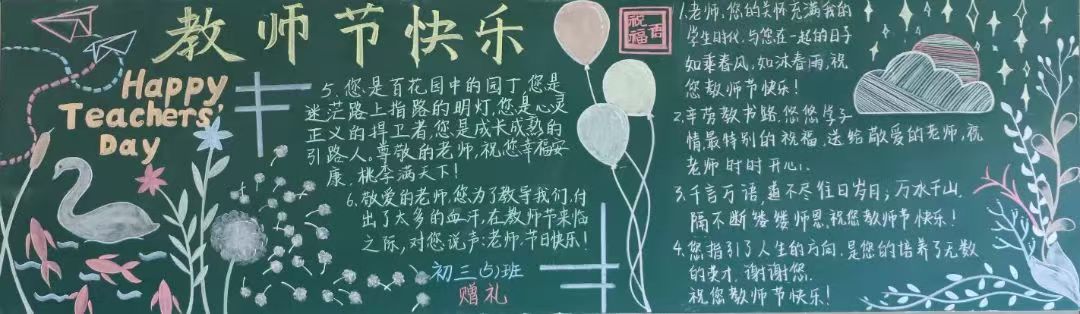 教师节快乐
Happy
Teachers'
Day
祝福语
1.老师,您的关怀充满我的
学生时代,与您在一起的日子
如乘春风,如沐春雨,祝
您教师节快乐!
2.辛劳教书路,悠悠学子
情最特别的祝福,送给敬爱的老师,祝
老师时时开心.
3.千言万语,道不尽往日岁月;万水千山,
隔不断缕缕师恩,祝您教师节快乐!
4.您指引了人生的方向,是您的培养了无数
的英才,谢谢您.
祝您教师节快乐!
5.您是百花园中的园丁,您是
迷茫路上指路的明灯,您是心灵
正义的捍卫者,您是成长成熟的
引路人。尊敬的老师,祝您幸福安
康,桃李满天下!
6.敬爱的老师,您为了教导我们,付
出了太多的血汗,在教师节来临
之际,对您说声:老师,节日快乐!
初三(5)班
赠礼